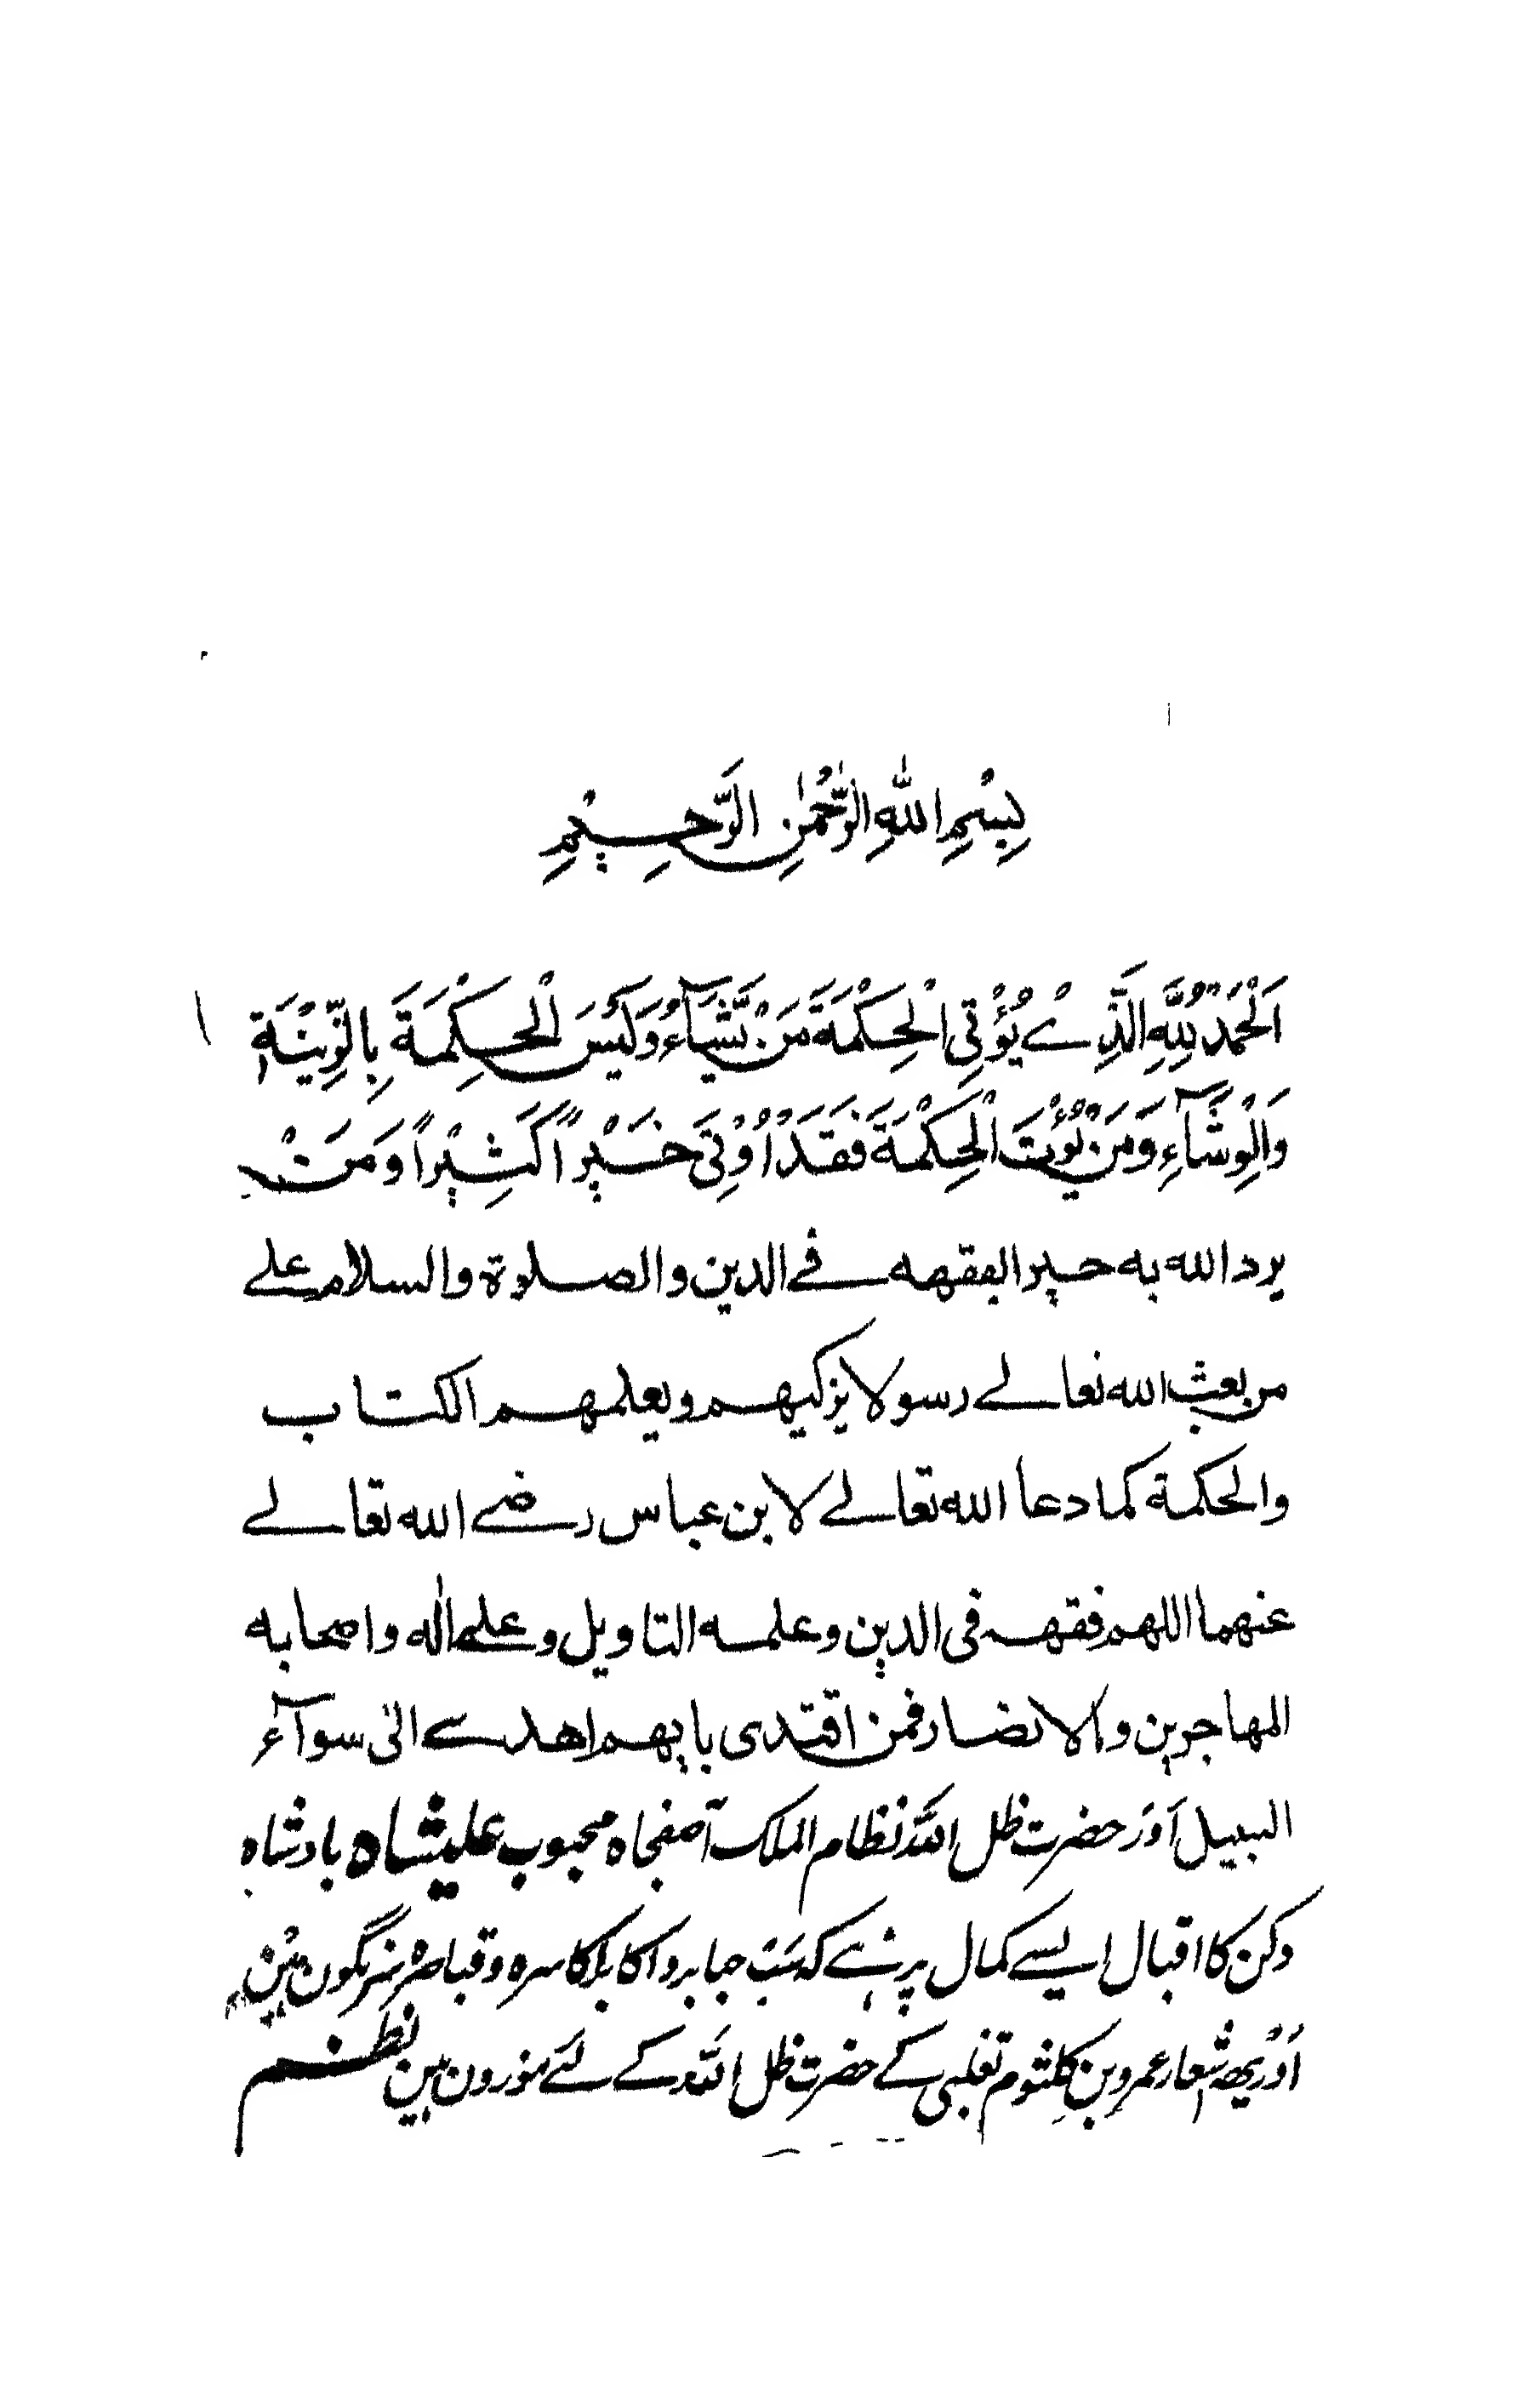 بِسْمِ اللّٰهِ الرَّحْمٰنِ الرَّحِيْمِ
اَلْحَمْدُ لِلّٰهِ الَّذِےْ يُؤْتِي الْحِكْمَةَ مَنْ يَّشَآءُ وَلَيْسَ الْحِكِمَةَ بِالزِّيْنَةِ
وَالْوِشَآءِ وَمَنْ يُؤْتَ الْحِكْمَةَ فَقَدْ اُوْتِيَ خَيْراً كَثِيْراً وَمَنْ
يرد الله به خيرا يفقهه فے الدين والصلوة والسلام علے
من بعث الله تعالے رسولا يزكيهم ويعلمهم الكتاب
والحكمة كما دعا الله تعالے لابن عباس رضے الله تعالے
عنهما اللهم فقهه فى الدين وعلمه التاويل وعلے اٰله واصحابه
المهاجرين والانصار فمن اقتدى بايهم اهتدے الى سوآء
السبيل اَور حضرت ظل اللہ نظام الملک آصفجاہ محبوب علیشاہ بادشاہ
دکن کا اقبال ایسے کمال پر ہے کہ سَب جبابرہ اکابر اکاسرہ وقیاصرہ سرنگون ہیْن
اَوْر یہہ اشعار عمرو بن کلثوم تغلبی کے حضرت ظل اللہ کے لئے موزون ہین نظم